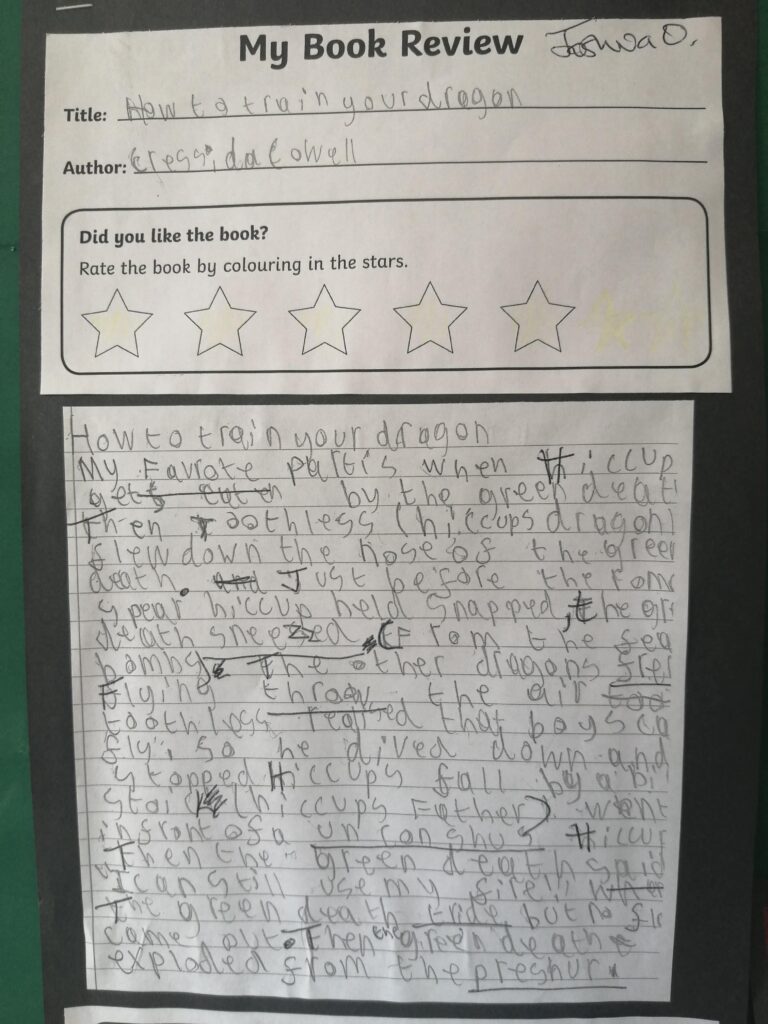 My Book Review Joshua O.
Title: How to train your dragon
Author: Cressida Cowell
Did you like the book?
Rate the book by colouring in the stars.
How to train your dragon
My Favrote part is when Hiccup
gets eaten by the green deat
Then Toothless (hiccups dragon)
flew down the nose of the gree
death. and Just before the
spear hiccup held snapped, the gr
death sneezed (From the fea
bombs. The other dragons
flying throw the air
toothless realised that boys ca
fly, so he dived down and
stopped Hiccups fall by a bi
Stoick (hiccups Father) went
infront of a unconshus Hiccup
Then the green death said
I can still use my fire!!
The green death tride but no fi
came out. Then the green death
exploded from the preshur.